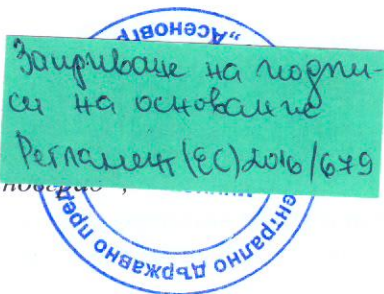 „Асеновг
Заличаване на подпи-
си на основание
Регламент (ЕС) 2016/679
ентрално държавно пред